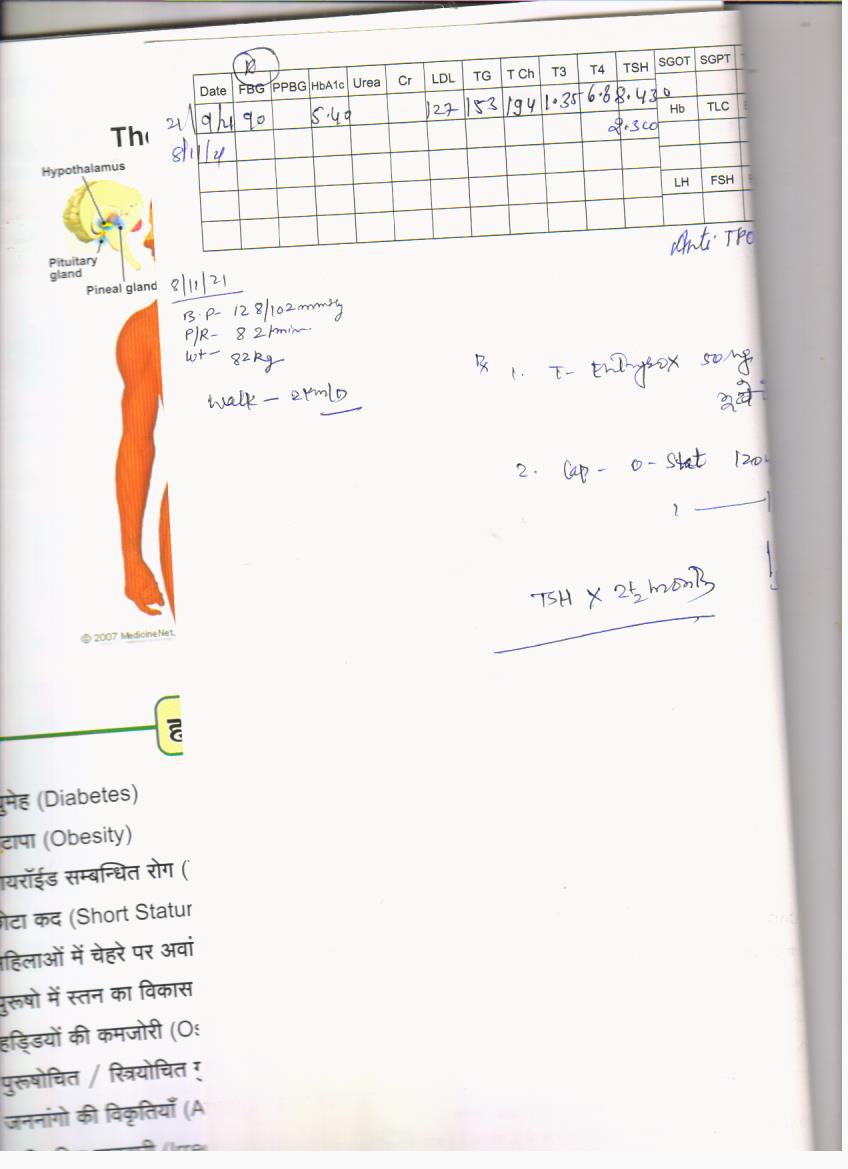 R
Date FBG PPBG HbA1c Urea Cr LDL TG T Ch T3 T4 TSH SGOT SGPT
21/9/21 90 5.40 127 153 194 1.35 6.8 8.430
Hb TLC
8/11/21 2.300
LH FSH
Anti TPO
The
Hypothalamus
Pituitary
gland
Pineal gland
8/11/21
B.P- 128/102 mmHg
P/R- 82/min
Wt- 82kg
Walk - 2km/D
Rx 1. T- Enthyrox 50
2. Cap - O-Stat 120
1
TSH X 2½ month
© 2007 MedicineNet.
ह
ुमेह (Diabetes)
टापा (Obesity)
ायरॉईड सम्बन्धित रोग (
ोटा कद (Short Statur
महिलाओं में चेहरे पर अवां
पुरूषो में स्तन का विकास
हड्डियों की कमजोरी (Os
पुरूषोचित / स्त्रियोचित गु
जननांगो की विकृतियाँ (A
(Irre